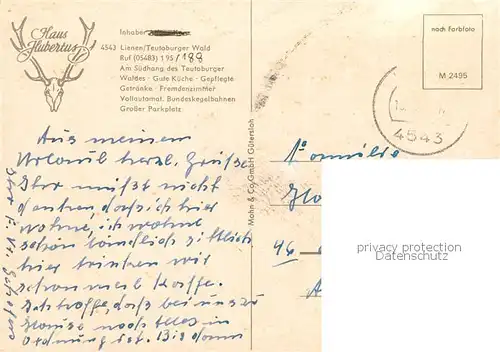 Haus
Hubertus
Inhaber
4543 Lienen/Teutoburger Wald
Ruf (05483) 195/188
Am Südhang des Teutoburger
Waldes · Gute Küche · Gepflegte
Getränke · Fremdenzimmer
Vollautomat. Bundeskegelbahnen
Großer Parkplatz
nach Farbfoto
M 2495
4543
Mohn & Co GmbH Gütersloh
Aus meinem
Urlaub herzl. Grüße
Ihr müßt nicht
denken, daß ich hier
wohne, ich wohne
schön ländlich sittlich
hier trinken wir
schon mal Kaffe.
Ich hoffe, daß bei unser
Hause noch Alles in
Ordnung ist. Bis dann
Familie
46
privacy protection
Datenschutz